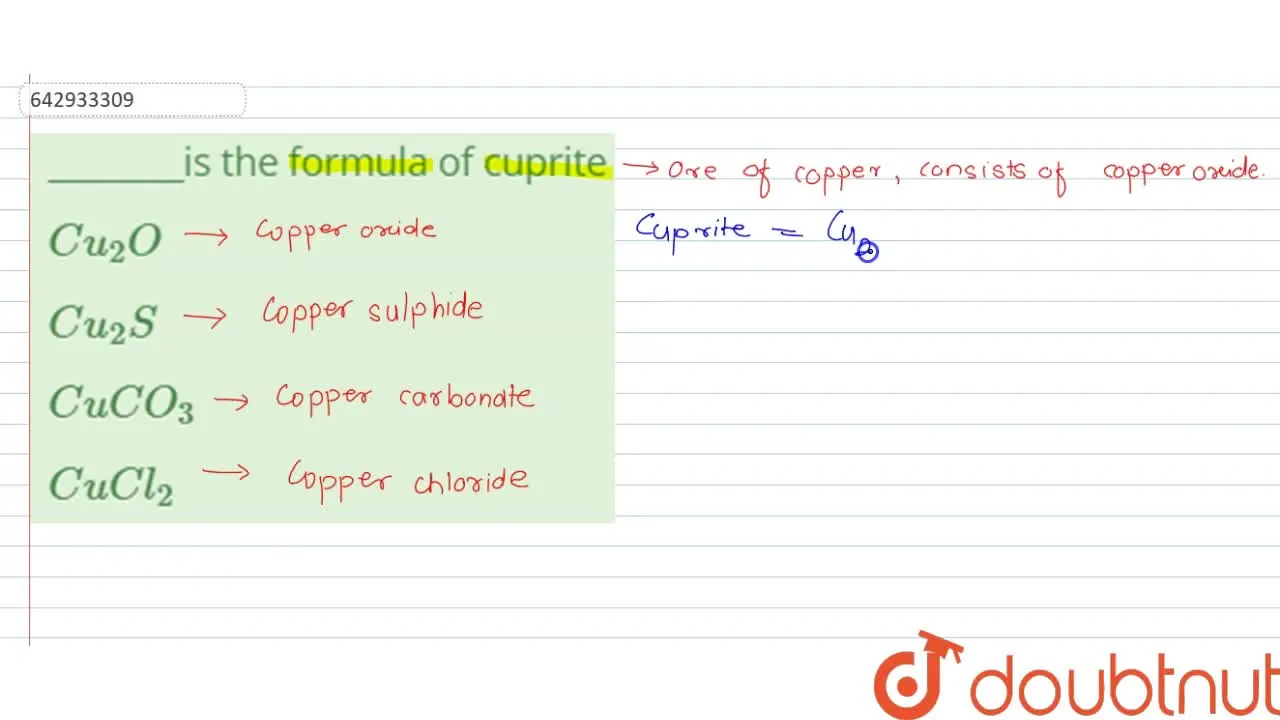 642933309
_______is the formula of cuprite → Ore of copper, consists of copper oxide.
Cu₂O → Copper oxide
Cuprite = Cu₂
Cu₂S → Copper sulphide
CuCO₃ → Copper carbonate
CuCl₂ → Copper chloride
doubtnut